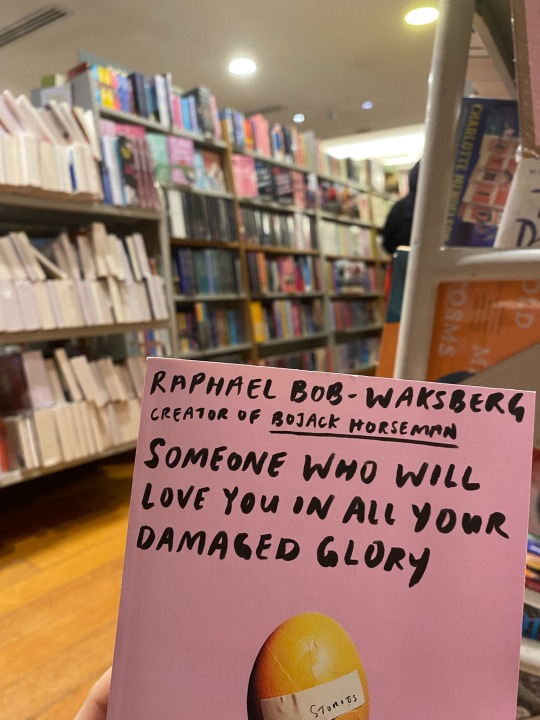 RAPHAEL BOB-WAKSBERG
CREATOR OF BOJACK HORSEMAN
SOMEONE WHO WILL
LOVE YOU IN ALL YOUR
DAMAGED GLORY
STORIES
CHARLOTTE